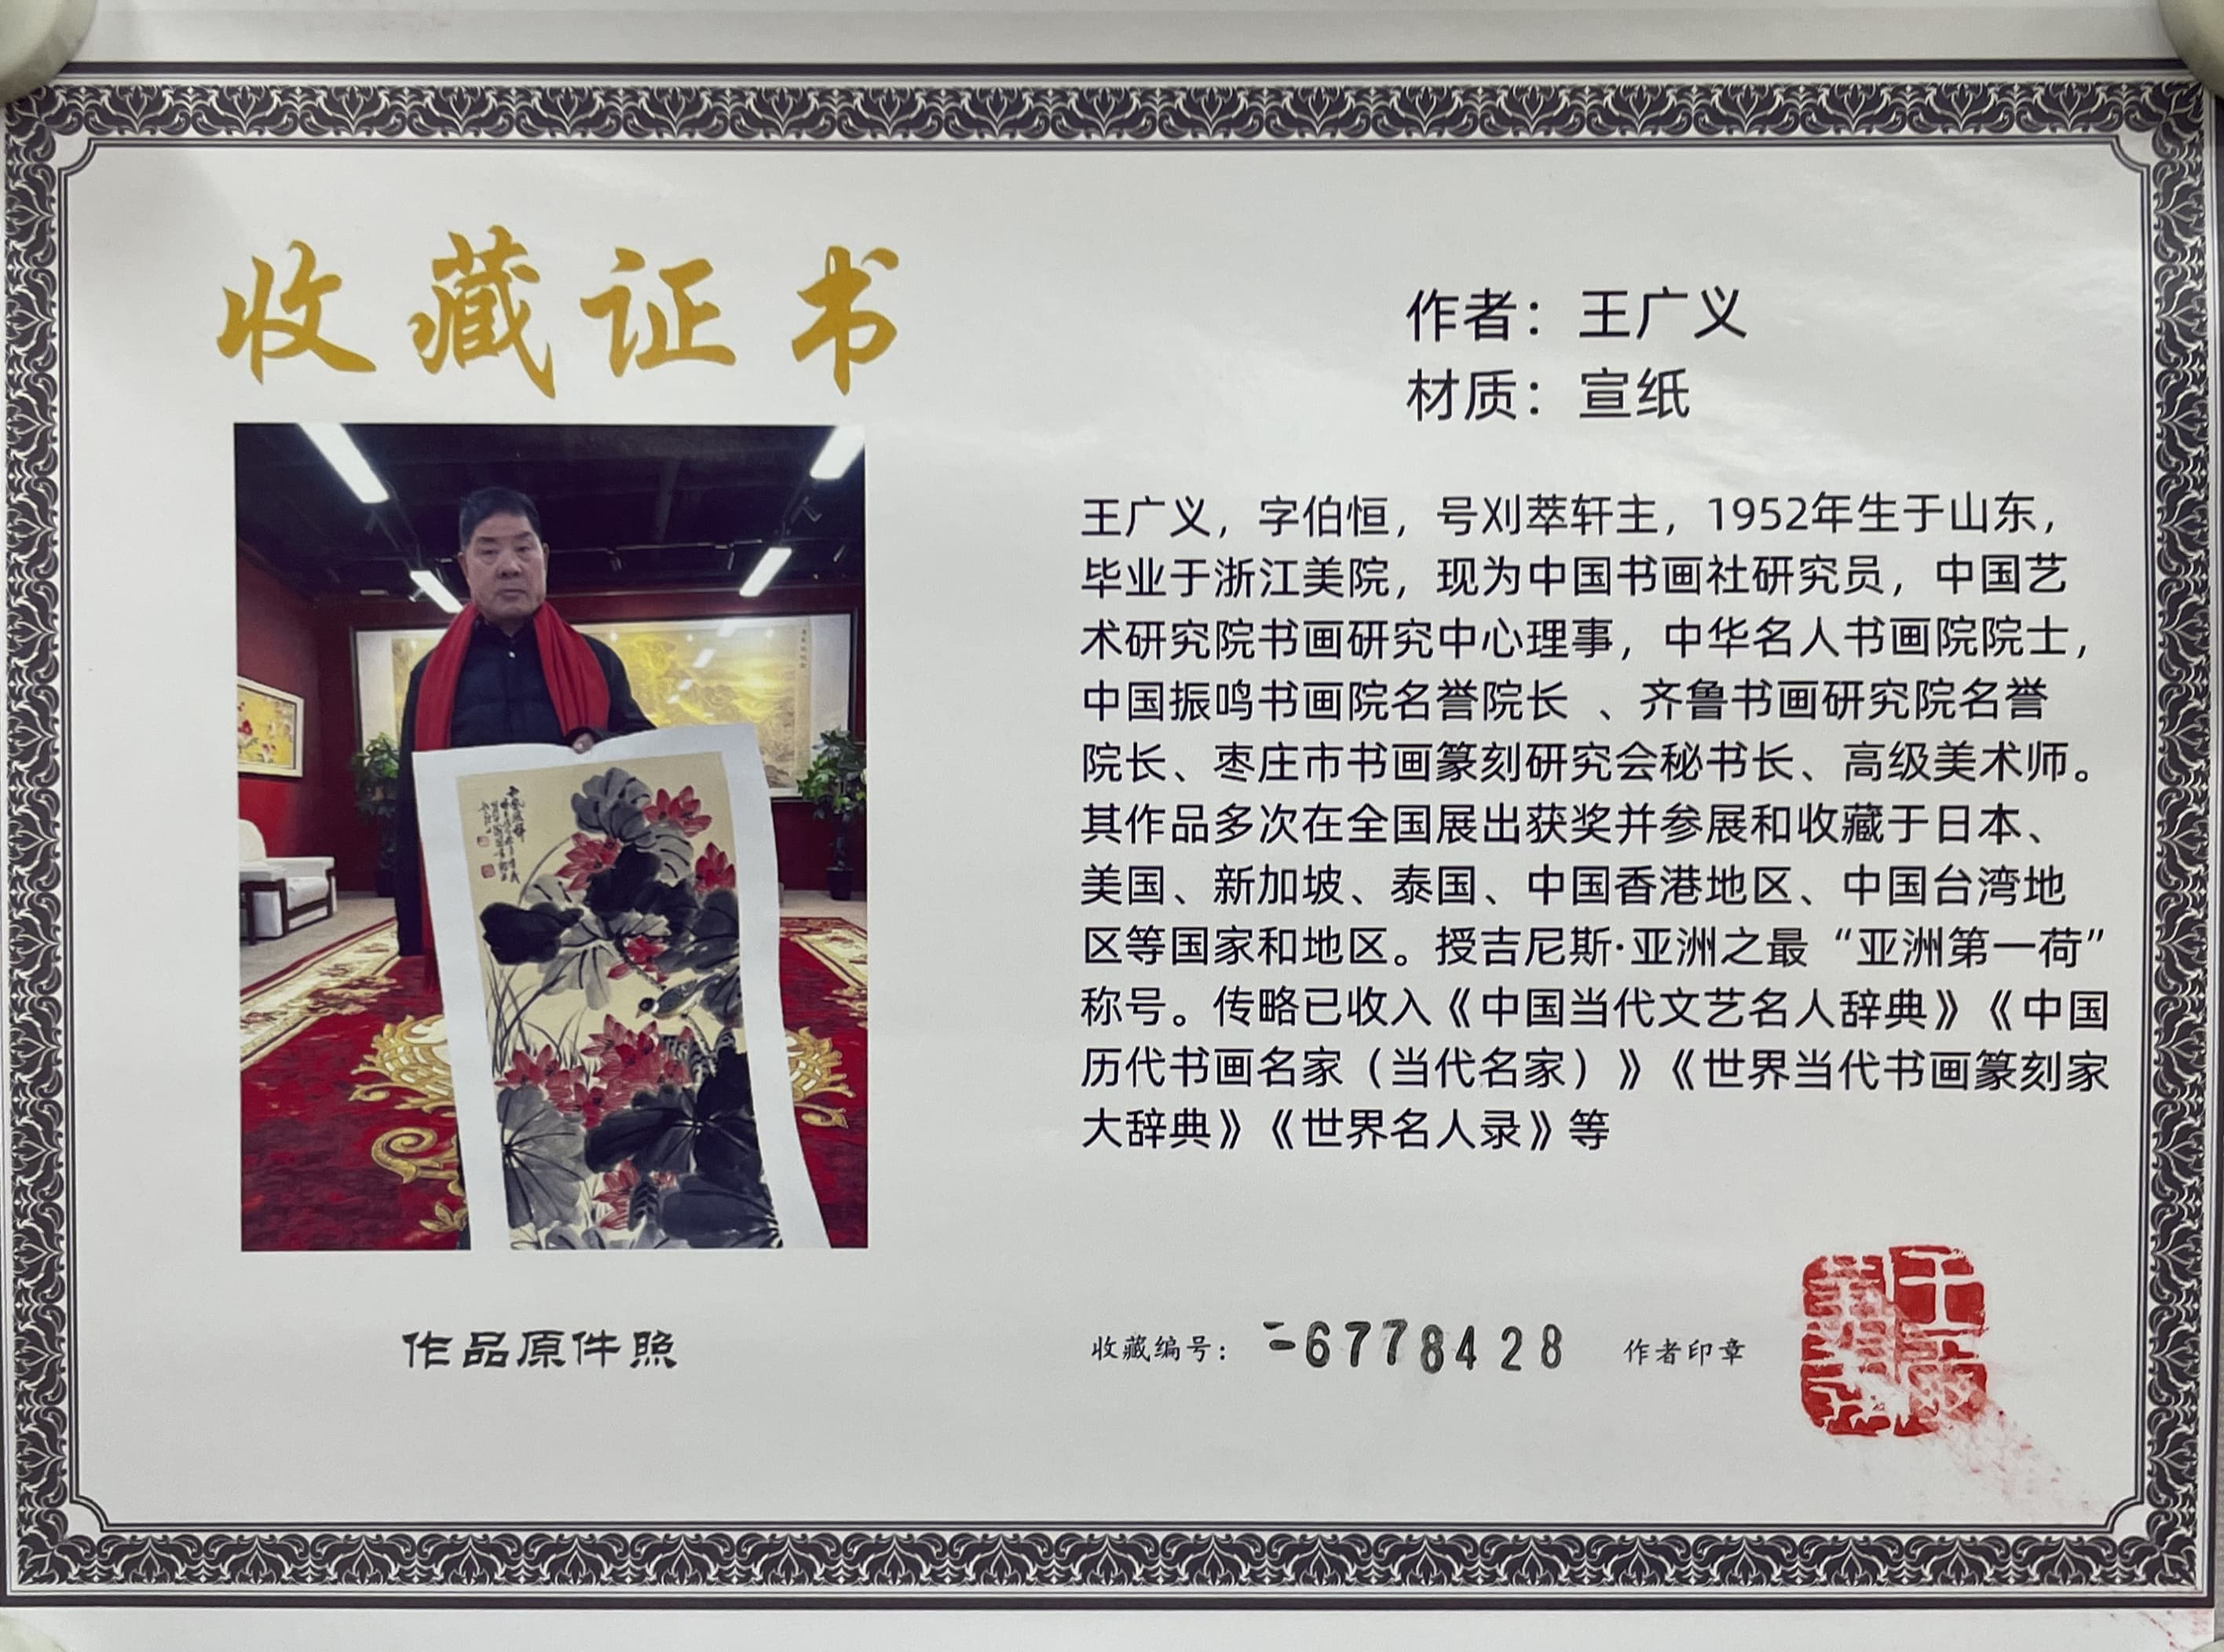 收藏证书
作者：王广义
材质：宣纸
王广义，字伯恒，号刈萃轩主，1952年生于山东，
毕业于浙江美院，现为中国书画社研究员，中国艺
术研究院书画研究中心理事，中华名人书画院院士，
中国振鸣书画院名誉院长 、齐鲁书画研究院名誉
院长、枣庄市书画篆刻研究会秘书长、高级美术师。
其作品多次在全国展出获奖并参展和收藏于日本、
美国、新加坡、泰国、中国香港地区、中国台湾地
区等国家和地区。授吉尼斯·亚洲之最“亚洲第一荷”
称号。传略已收入《中国当代文艺名人辞典》《中国
历代书画名家（当代名家）》《世界当代书画篆刻家
大辞典》《世界名人录》等
作品原件照
收藏编号：6778428
作者印章